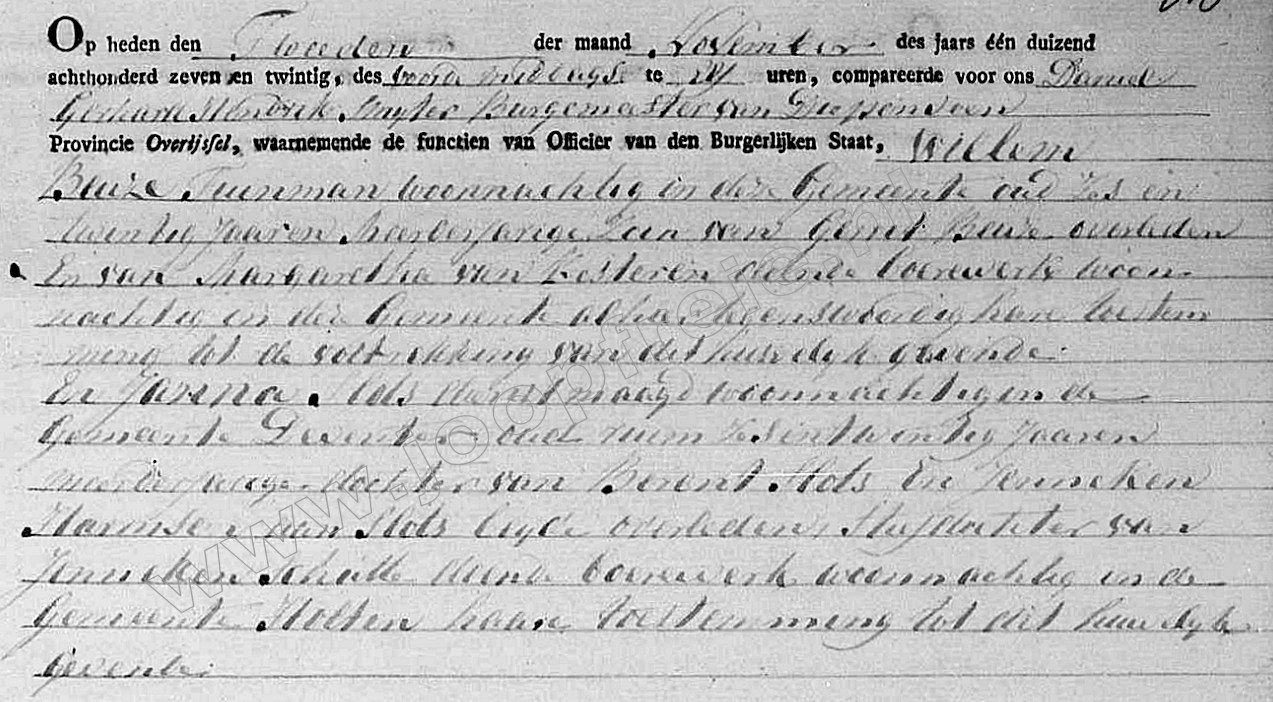 Op heden den Tweeden der maand November des jaars één duizend
achthonderd zeven en twintig, des voorde middags te uren, compareerde voor ons Daniel
Gerhard Hendrik Burgemeester van Diepenveen
Provincie Overijssel, waarnemende de functien van Officier van den Burgerlijken Staat, Willem
Beure Tuinman woonnachtig in deze Gemeente oud Zes en
twintig Jaaren meerderjarige Zoon van Gerrit Beure overleden
En van Margaretha van Kesteren doende boerewerk woon
nachtig in deze Gemeente alhier tegenswoordig haar toestem
ming tot de voltrekking van dit huwelijk gevende
En Janna Slots dienstmaagd woonnachtig in de
Gemeente Deventer oud ruim Zes en twintig Jaaren
meerderjarige dochter van Berent Slots En Jenneken
Harmsen aan Slots beyde overleden, Stiefdochter van
Jenneken Schutte doende boerewerk woonnachtig in de
Gemeente Holten haare toestemming tot dit huwelyk
gevende
www.joopfreije.nl